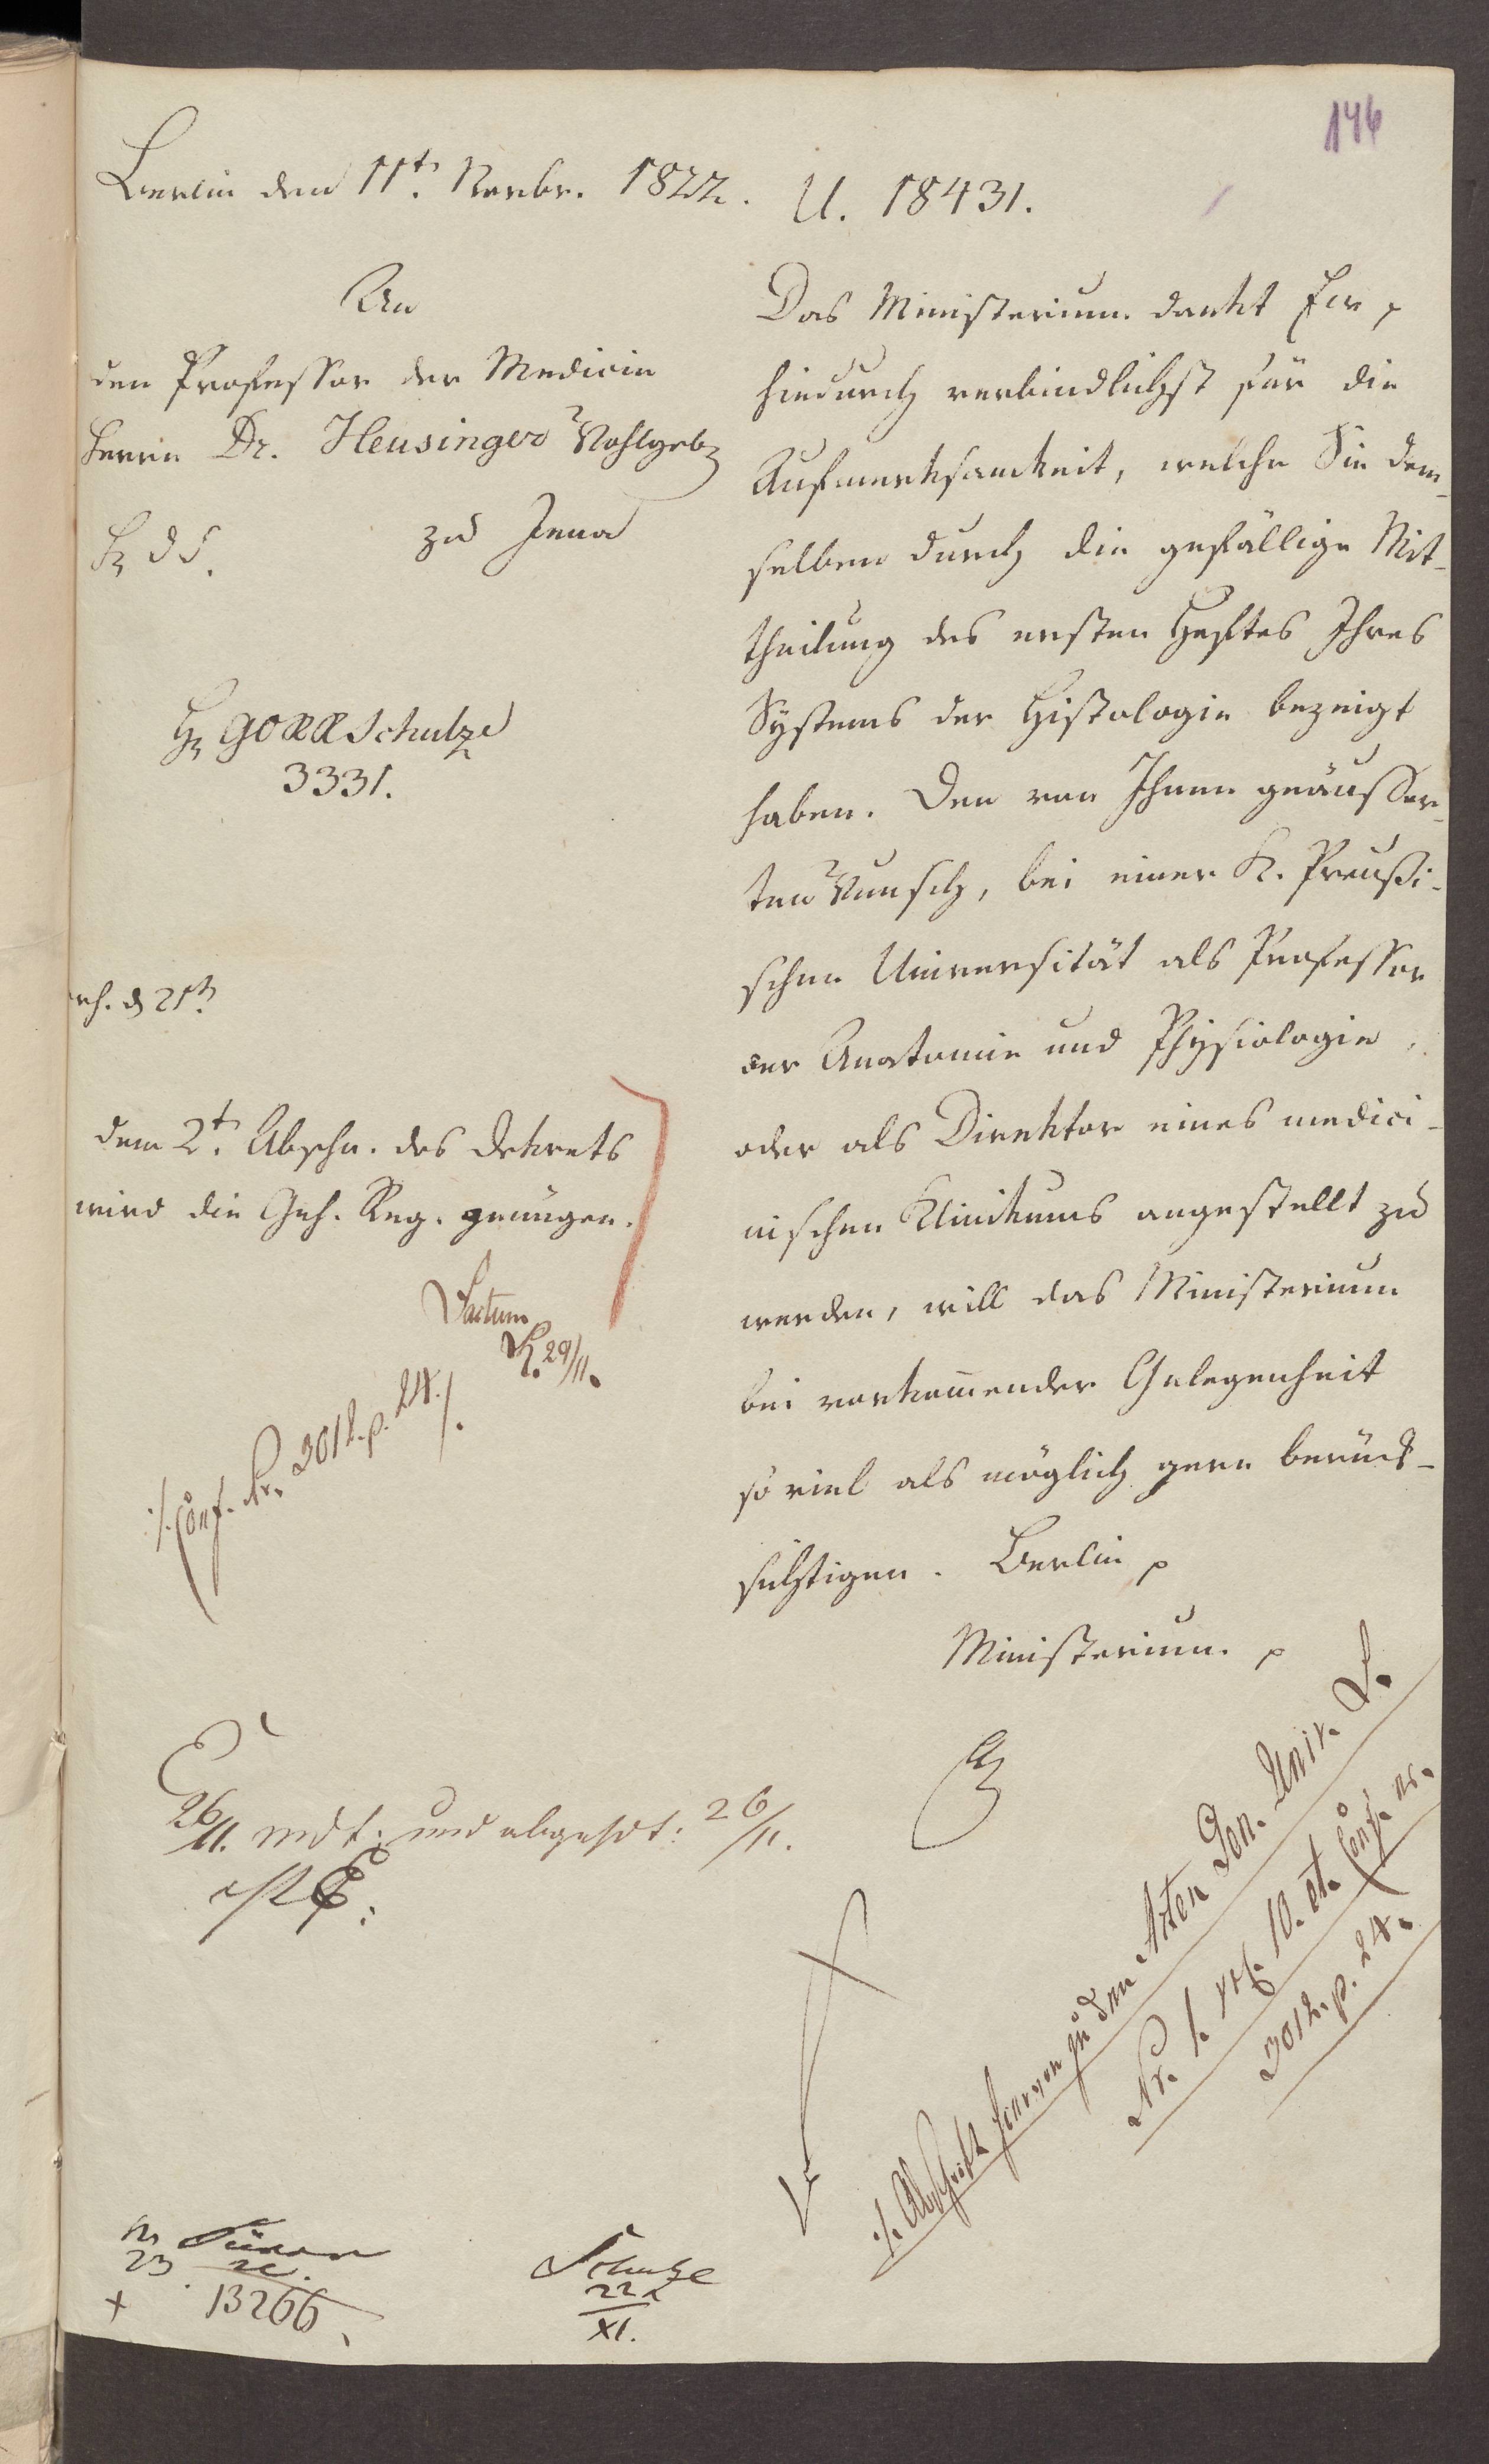 146
Berlin den 11t. Novbr. 1822.
U. 18431.
An
den Professor der Medicin
Herrn Dr. Heusinger Wohlgeb
zu Jena
H GORR Schulze
3331.
den 2t. Abschn. des Dekrets
wird die Geh. Reg. genügen.
Factum
29/11.
./. Conf. Nr. 3012. p. 24. /.
Das Ministerium dankt Ew p
hiedurch verbindlichst für die
Aufmerksamkeit, welche Sie dem-
selben durch die gefällige Mit-
theilung des ersten Heftes Ihres
Systems der Histologie bezeigt
haben. Den von Ihnen geäusser-
ten Wunsch, bei einer K. Preußi-
schen Universität als Professor
der Anatomie und Physiologie,
oder als Direktor eines medici-
nischen Klinikums angestellt zu
werden, will das Ministerium
bei vorkom̅ender Gelegenheit
so viel als möglich gern berück-
sichtigen. Berlin p
Ministerium. p
26/11. mdt: und abgesdt: 26/11.
./. Abschrift hiervon zu den Akten Gen. Univ.
Nr. 1. 10. et. Conf. nr.
3012. p. 24.
23
13266
Schulze
22
XI.